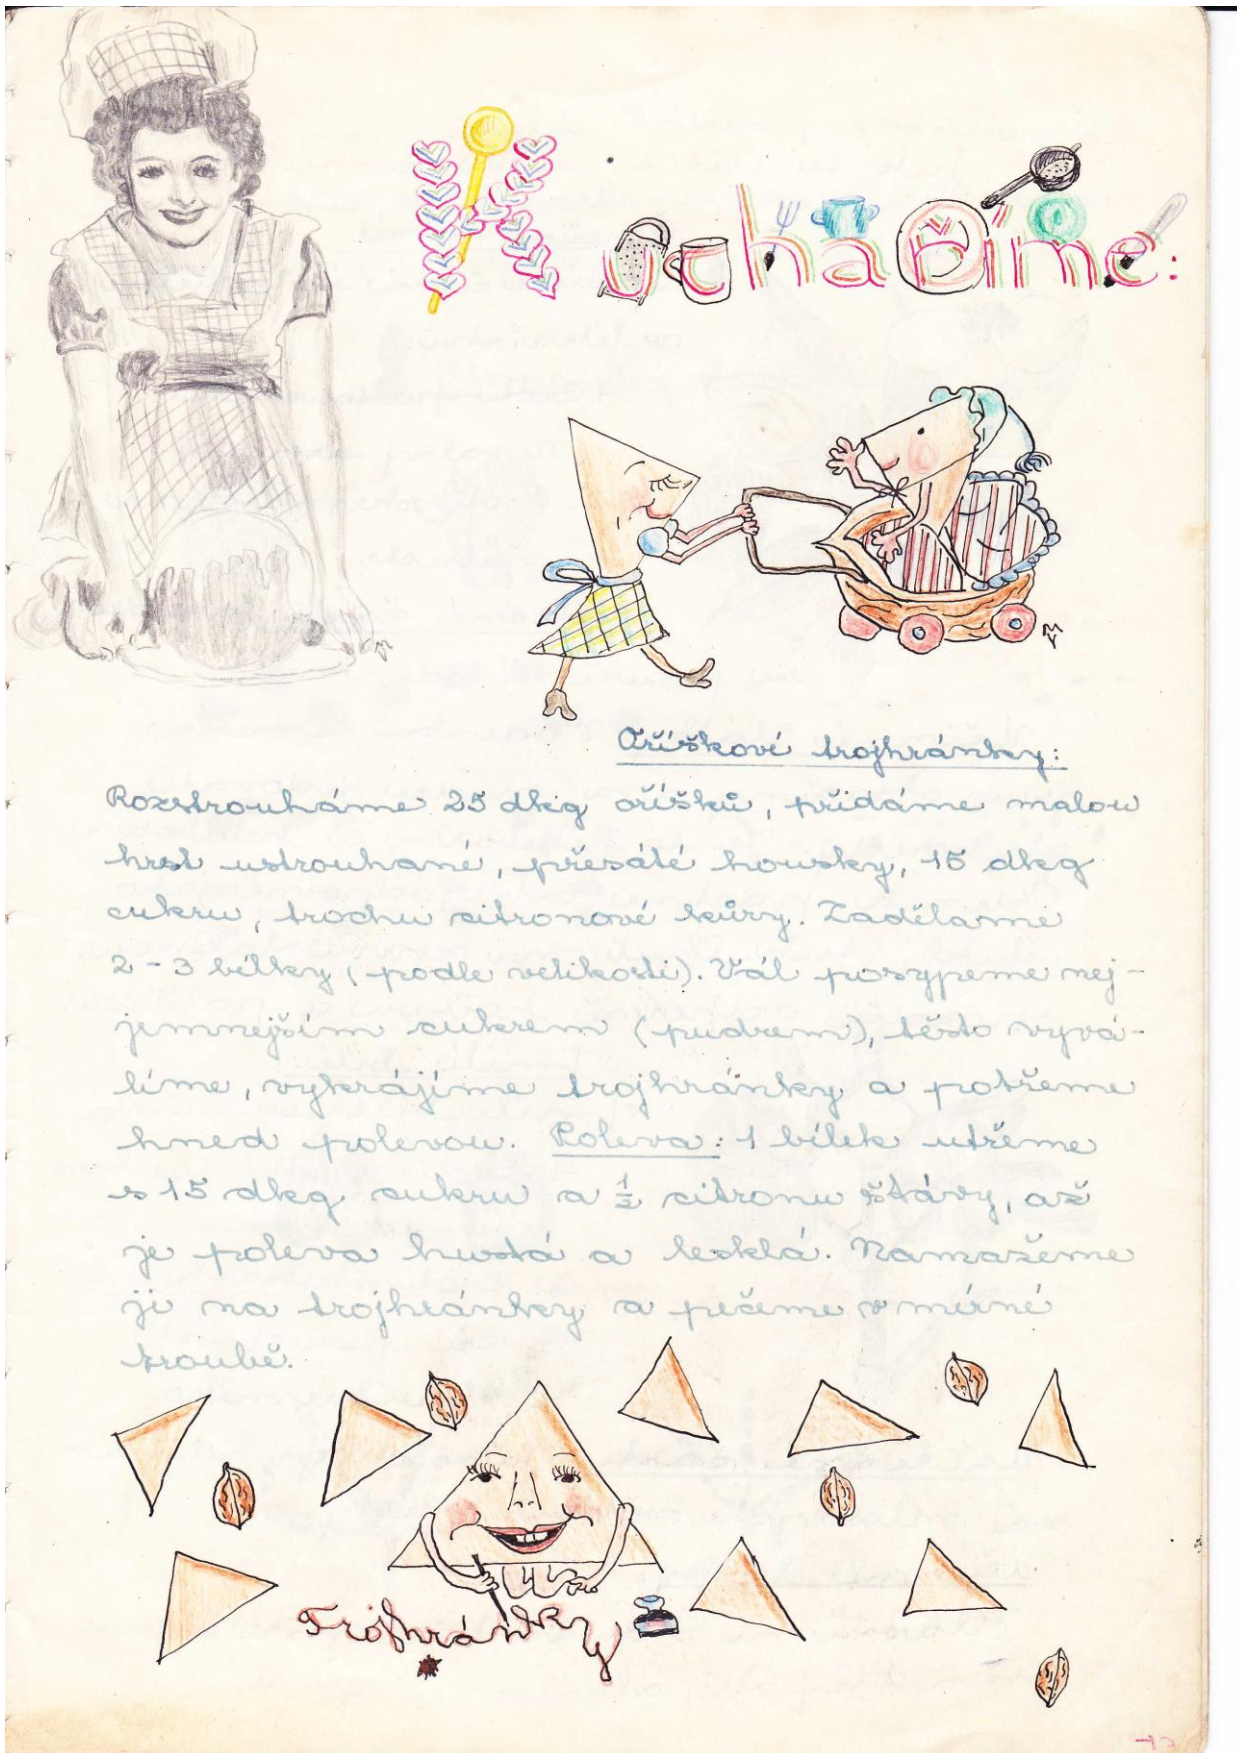 Kuchaříme:
Oříškové trojhránky:
Rozstrouháme 25 dkg oříšků, přidáme malou
hrst ustrouhané, přesáté housky, 15 dkg
cukru, trochu citronové kůry. Zaděláme
2 - 3 bílky (podle velikosti). Vál posypeme nej-
jemnejším cukrem (pudrem), těsto vyvá-
líme, vykrájíme trojhránky a potřeme
hned polevou. Poleva: 1 bílek utřeme
s 15 dkg cukru a ½ citronu štávy, až
je poleva hustá a lesklá. Namažeme
ji na trojhránky a pečeme v mírné
troubě.
Trojhránky